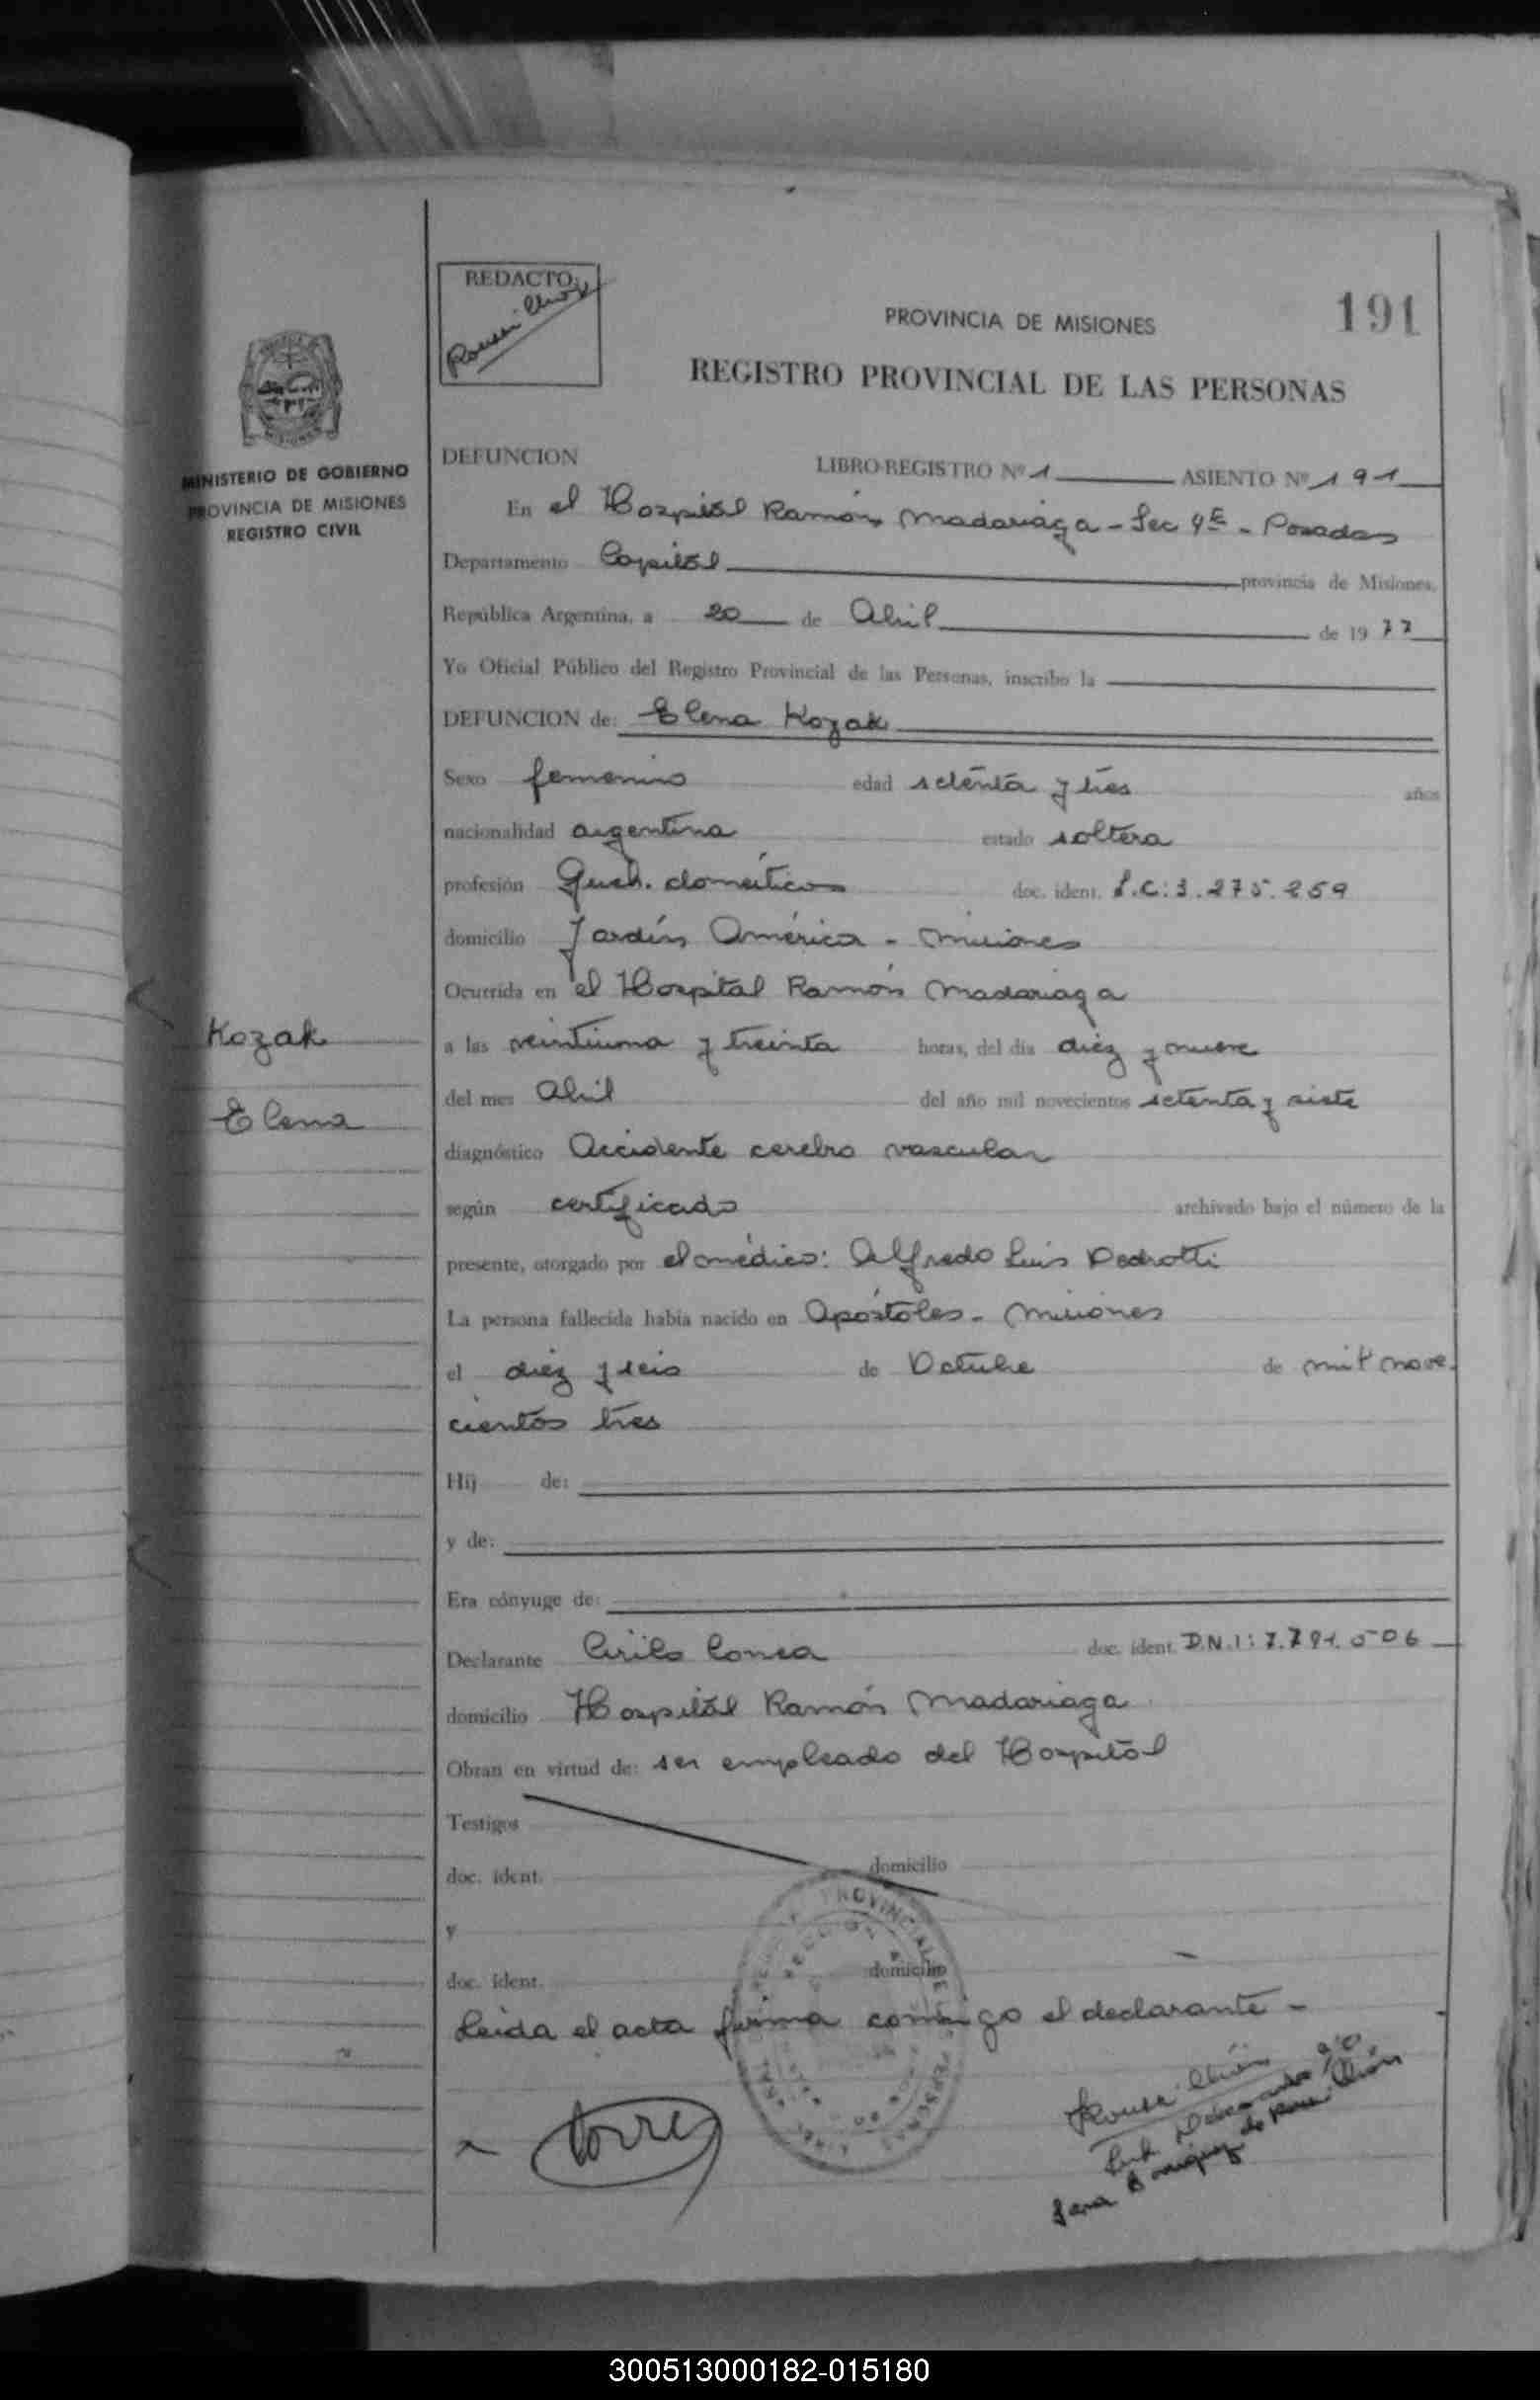 REDACTO:
PROVINCIA DE MISIONES
191
REGISTRO PROVINCIAL DE LAS PERSONAS
MINISTERIO DE GOBIERNO
PROVINCIA DE MISIONES
REGISTRO CIVIL
DEFUNCION LIBRO-REGISTRO Nº 1 ASIENTO Nº 191
En el Hospital Ramón Madariaga - Sec 4ª - Posadas
Departamento Capital provincia de Misiones,
República Argentina, a 20 de Abril de 1977
Yo Oficial Público del Registro Provincial de las Personas, inscribo la
DEFUNCION de: Elena Kozak
Sexo femenino edad setenta y tres años
nacionalidad argentina estado soltera
profesión Queh. domésticos doc. ident. L.C: 3.275.259
domicilio Jardín América - Misiones
Ocurrida en el Hospital Ramón Madariaga
Kozak
Elena
a las veintiuna y treinta horas, del día diez y nueve
del mes Abril del año mil novecientos setenta y siete
diagnóstico Accidente cerebro vascular
según certificado archivado bajo el número de la
presente, otorgado por el médico: Alfredo Luis Pedrotti
La persona fallecida había nacido en Apóstoles - Misiones
el diez y seis de Octubre de mil nove-
cientos tres
Hij de:
y de:
Era cónyuge de:
Declarante Cirilo Correa doc. ident. D.N.I: 7.791.506
domicilio Hospital Ramón Madariaga
Obran en virtud de: ser empleado del Hospital
Testigos
doc. ident. domicilio
y
doc. ident. domicilio
Leída el acta firma conmigo el declarante -
300513000182-015180